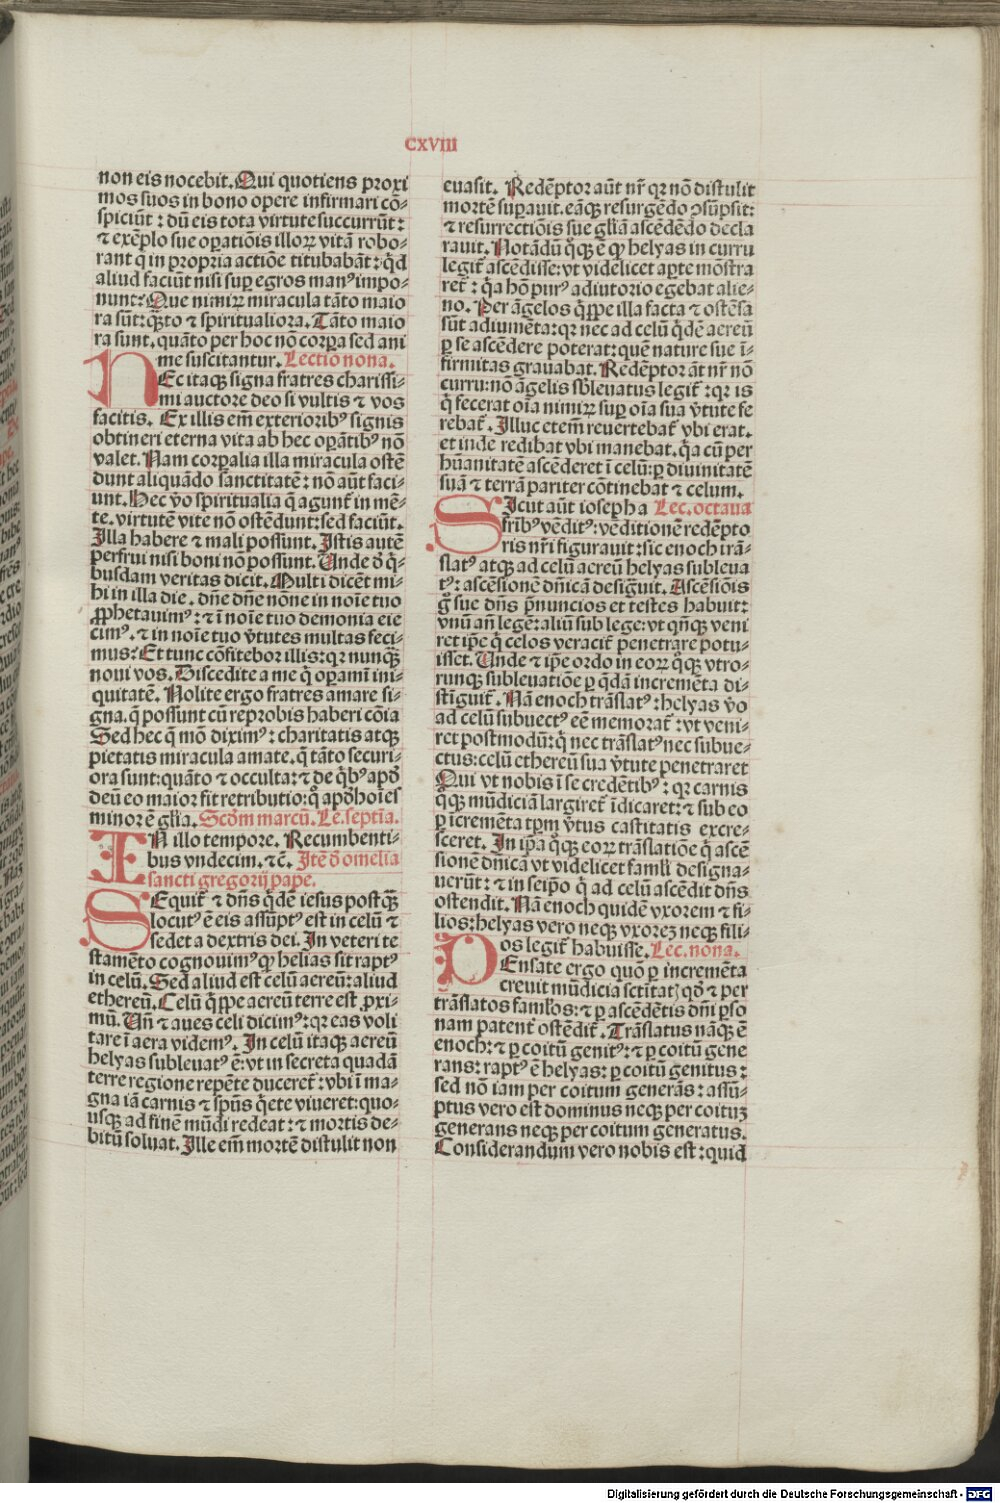 CXVIII
non eis nocebit. Qui quotiens proxi
mos suos in bono opere infirmari cõ-
spiciũt : dũ eis tota virtute succurrũt :
⁊ exẽplo sue oꝑatiõis illoꝝ vitã robo-
rant q in propria actiõe titubabãt : q̃d
aliud faciũt nisi suꝑ egros manꝰ impo-
nunt? Que nimiꝝ miracula tãto maio
ra sũt: q̃ꝫto ⁊ spiritualiora. Tãto maio
ra sunt. quãto per hoc nõ corꝑa sed ani
me suscitantur. Lectio nona.
NEc itaqꝫ signa fratres charissi-
mi auctore deo si vultis ⁊ vos
facitis. Ex illis em̃ exterioribꝰ signis
obtineri eterna vita ab hec oꝑãtibꝰ nõ
valet. Nam corꝑalia illa miracula ostẽ
dunt aliquãdo sanctitatẽ : nõ aũt faci-
unt. Hec ṽo spiritualia q̃ agunt̃ in mẽ-
te. virtutẽ vite nõ ostẽdunt: sed faciũt.
Illa habere ⁊ mali possunt. Istis autẽ
perfrui nisi boni nõ possunt. Unde d̃ q̃-
busdam veritas dicit. Multi dicẽt mi-
hi in illa die. dñe dñe nõne in noĩe tuo
ꝓphetauimꝰ : ⁊ ĩ noĩe tuo demonia eie
cimꝰ. ⁊ in noĩe tuo v̾tutes multas feci-
mus? Et tunc cõfitebor illis: qꝛ nunq̃ꝫ
noui vos. Discedite a me q̃ oꝑamĩ ini-
quitatẽ. Nolite ergo fratres amare si-
gna. q̃ possunt cũ reprobis haberi cõia
Sed hec q̃ mõ diximꝰ : charitatis atqꝫ
pietatis miracula amate. q̃ tãto securi-
ora sunt: quãto ⁊ occulta: ⁊ de q̃bꝰ apd̾
deũ eo maior fit retributio: q̊ apd̾ hoĩes
minor ẽ gl̃ia. Scd̾m marcũ. Le. septĩa.
IN illo tempore. Recumbenti-
bus vndecim. ⁊c̃. Itẽ d̃ omelia
sancti gregorij pape.
SEquit̃ ⁊ dñs q̃dẽ iesus postq̃ꝫ
locutꝰ ẽ eis assũptꝰ est in celũ ⁊
sedet a dextris dei. In veteri te
stamẽto cognouimꝰ ꝙ helias sit raptꝰ
in celũ. Sed aliud est celũ aereũ: aliud
ethereũ. Celũ q̃ꝑpe aereũ terre est ꝓxi-
mũ. Uñ ⁊ aues celi dicimꝰ : qꝛ eas voli
tare ĩ aera videmꝰ. In celũ itaqꝫ aereũ
helyas subleuatꝰ ẽ: vt in secreta quadã
terre regione repẽte duceret̃ : vbi ĩ ma-
gna iã carnis ⁊ spũs q̃ete viueret: quo-
usqꝫ ad finẽ mũdi redeat : ⁊ mortis de-
bitũ soluat. Ille em̃ mortẽ distulit non
euasit. Redẽptor aũt nr̃ qꝛ nõ distulit
mortẽ suꝑauit. eãqꝫ resurgẽdo ꝯsũpsit:
⁊ resurrectiõis sue gl̃iã ascẽdẽdo decla
rauit. Notãdũ q̊qꝫ ẽ ꝙ helyas in curru
legit̃ ascẽdisse: vt videlicet aꝑte mõstra
ret̃ : q̃a hõ purꝰ adiutorio egebat alie-
no. Per ãgelos q̃ꝑpe illa facta ⁊ ostẽsa
sũt adiumẽta: qꝛ nec ad celũ q̃dẽ aereũ
ꝑ se ascẽdere poterat: quẽ nature sue ĩ-
firmitas grauabat. Redẽptor aũt nr̃ nõ
curru: nõ ãgelis sb̾leuatus legit̃ : qꝛ is
q̃ fecerat oĩa nimiꝝ suꝑ oĩa sua v̾tute fe
rebat̃. Illuc etem̃ reuertebat̃ vbi erat.
et inde redibat vbi manebat. q̃a cũ per
hũanitatẽ ascẽderet ĩ celũ: ꝑ diuinitatẽ
suã ⁊ terrã pariter cõtinebat ⁊ celum.
SIcut aũt ioseph a Lec. octaua
fribꝰ vẽditꝰ : vẽditionẽ redẽpto
ris nr̃i figurauit : sic enoch trã-
slatꝰ atqꝫ ad celũ aereũ helyas subleua
tꝰ : ascẽsionẽ dñicã desiguit. Ascẽsiõis
g̊ sue dñs p̃nuncios et testes habuit:
vnũ añ legẽ: aliũ sub lege: vt qñqꝫ veni
ret ip̃e q̃ celos veracit̃ penetrare potu-
isset. Unde ⁊ ip̃e ordo in eoꝝ q̊qꝫ vtro-
runqꝫ subleuatiõe ꝑ q̃dã incremẽta di-
stĩguit̃. Nã enoch trãslatꝰ : helyas ṽo
ad celũ subuectꝰ eẽ memorat̃ : vt veni-
ret postmodũ: q̃ nec trãslatꝰ nec subue-
ctus: celũ ethereũ sua v̾tute penetraret
Qui vt nobis ĩ se credẽtibꝰ : qꝛ carnis
q̊qꝫ mũdiciã largiret̃ ĩdicaret: ⁊ sub eo
ꝑ icremẽta tꝑm v̾tus castitatis excre-
sceret. In ip̃a q̊qꝫ eoꝝ trãslatiõe q̃ ascẽ
sionẽ dñicã vt videlicet famli̾ designa-
uerũt : ⁊ in seip̃o q̃ ad celũ ascẽdit dñs
ostendit. Nã enoch quidẽ vxorem ⁊ fi-
lios: helyas vero neqꝫ vxoreꝫ neqꝫ fili-
os legit̃ habuisse. Lec. nona.
PEnsate ergo quõ ꝑ incremẽta
creuit mũdicia sctĩtatꝭ qd̾ ⁊ per
trãslatos famlo̾s: ⁊ ꝑ ascẽdẽtis dñi ꝑso
nam patent̾ ostẽdit̃. Trãslatus nãqꝫ ẽ
enoch: ⁊ ꝑ coitũ genitꝰ: ⁊ ꝑ coitũ gene
rans: raptꝰ ẽ helyas: ꝑ coitũ genitus :
sed nõ iam per coitum generãs : assũ-
ptus vero est dominus neqꝫ per coituꝫ
generans neqꝫ per coitum generatus.
Considerandum vero nobis est : quid
Digitalisierung gefördert durch die Deutsche Forschungsgemeinschaft - DFG